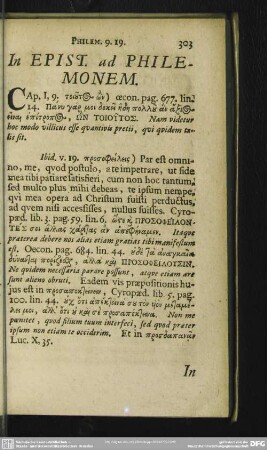 PHILEM. 9. 19. 303
In EPIST. ad PHILE-
MONEM.
CAp. I, 9. τοιῦτος ὢν) œcon. pag. 677. lin.
14. Πάνυ γάρ μοι δοκεῖ ἤδη πολλοῦ ἂν ἄξιος
εἶναι ἐπίτροπος, ΩΝ ΤΟΙΟΥΤΟΣ. Nam videtur
hoc modo villicus esse quantivis pretii, qui quidem ta-
lis sit.
Ibid. v. 19. προσοφείλεις) Par est omni-
no, me, quod postulo, a te impetrare, ut fide
mea tibi patiare satisfieri, cum non hoc tantum,
sed multo plus mihi debeas, te ipsum nempe,
qui mea opera ad Christum fuisti perductus,
ad quem nisi accesfisses, nullus fuisses. Cyro-
pæd. lib. 3. pag. 59. lin. 6. ΠΡΟΣΟΦΕΙΛΟΝ-
ΤΕΣ σοι ἄλλας χάριτας Itaque
præterea debere nos alias etiam gratias tibi manifestum
est, Oecon. pag. 684. lin. 44.
ἀλλὰ καὶ ΠΡΟΣΟΦΕΙΛΟΥΣΙΝ.
Ne quidem necessaria parare possunt, atque etiam ære
sunt alieno obruti. Eadem vis præpositionis hu-
jus est in Cyropæd. lib. 5. pag.
100. lin. 44. οὐχ ὅτι
Non me
pœnitet, quod filium tuum interfeci, sed quod præter
ipsum non etiam te occiderim. Et in προσδαπανᾶν
Luc. X, 35.
In